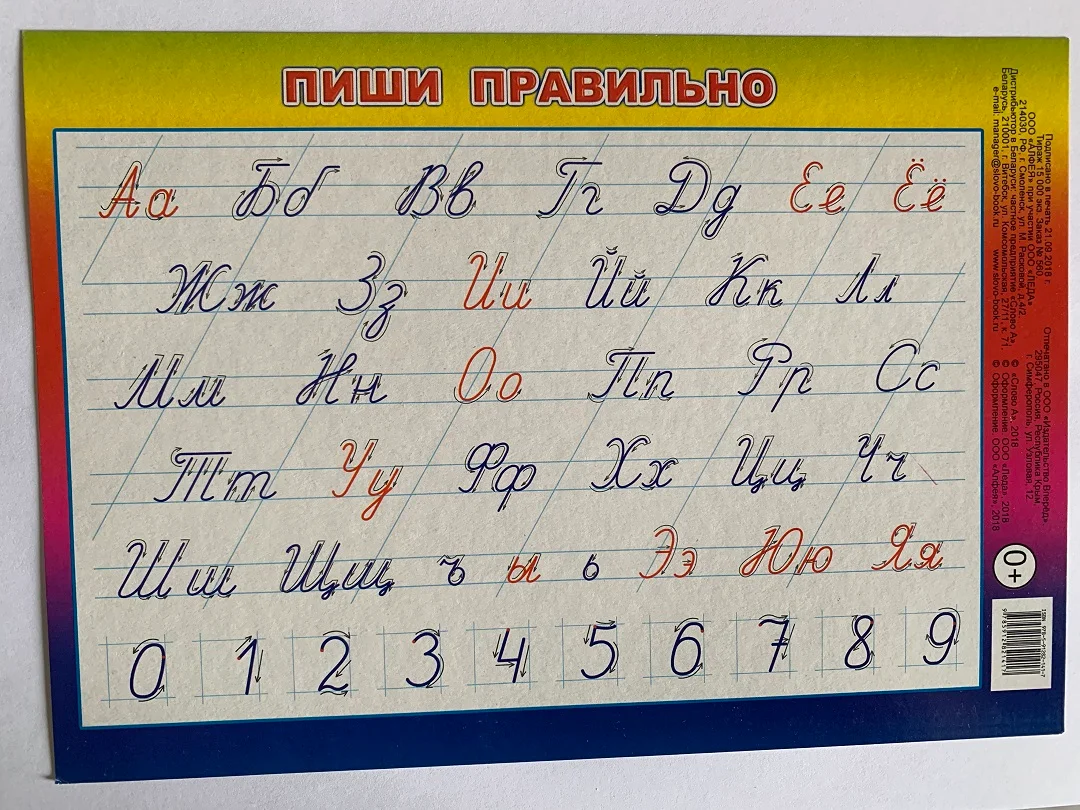 ПИШИ ПРАВИЛЬНО
Аа Бб Вв Гг Дд Ее Ёё
Жж Зз Ии Йй Кк Лл
Мм Нн Оо Пп Рр Сс
Тт Уу Фф Хх Цц Чч
Шш Щщ ъ ы ь Ээ Юю Яя
0 1 2 3 4 5 6 7 8 9
Подписано в печать 21.09.2018 г.
Тираж 15 000 экз. Заказ № 560
ООО «АЛФЕЯ» при участии ООО «ЛЕДА»
214030, РФ, г. Смоленск, ул. М. Расковой, д.4/2.
Дистрибьютор в Беларуси: частное предприятие «Слово А»,
Беларусь, 210001, г. Витебск, ул. Комсомольская, 27/11, к. 71.
e-mail: manager@slovo-book.ru www.slovo-book.ru
Отпечатано в ООО «Издательство Вперед»,
295047, Россия, Республика Крым,
г. Симферополь, ул. Узловая, 12
© «Слово А», 2018
© Оформление. ООО «Леда», 2018
© Оформление. ООО «Алфея», 2018
0+